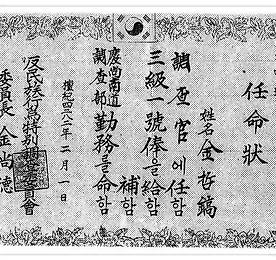 任命狀
姓名 金哲鎬
調査官에任함
三級一號俸을給함
補함
慶尙南道
調査部勤務를命함
檀紀四二八二年二月一日
反民族行爲特別調査委員會
委員長 金尙德